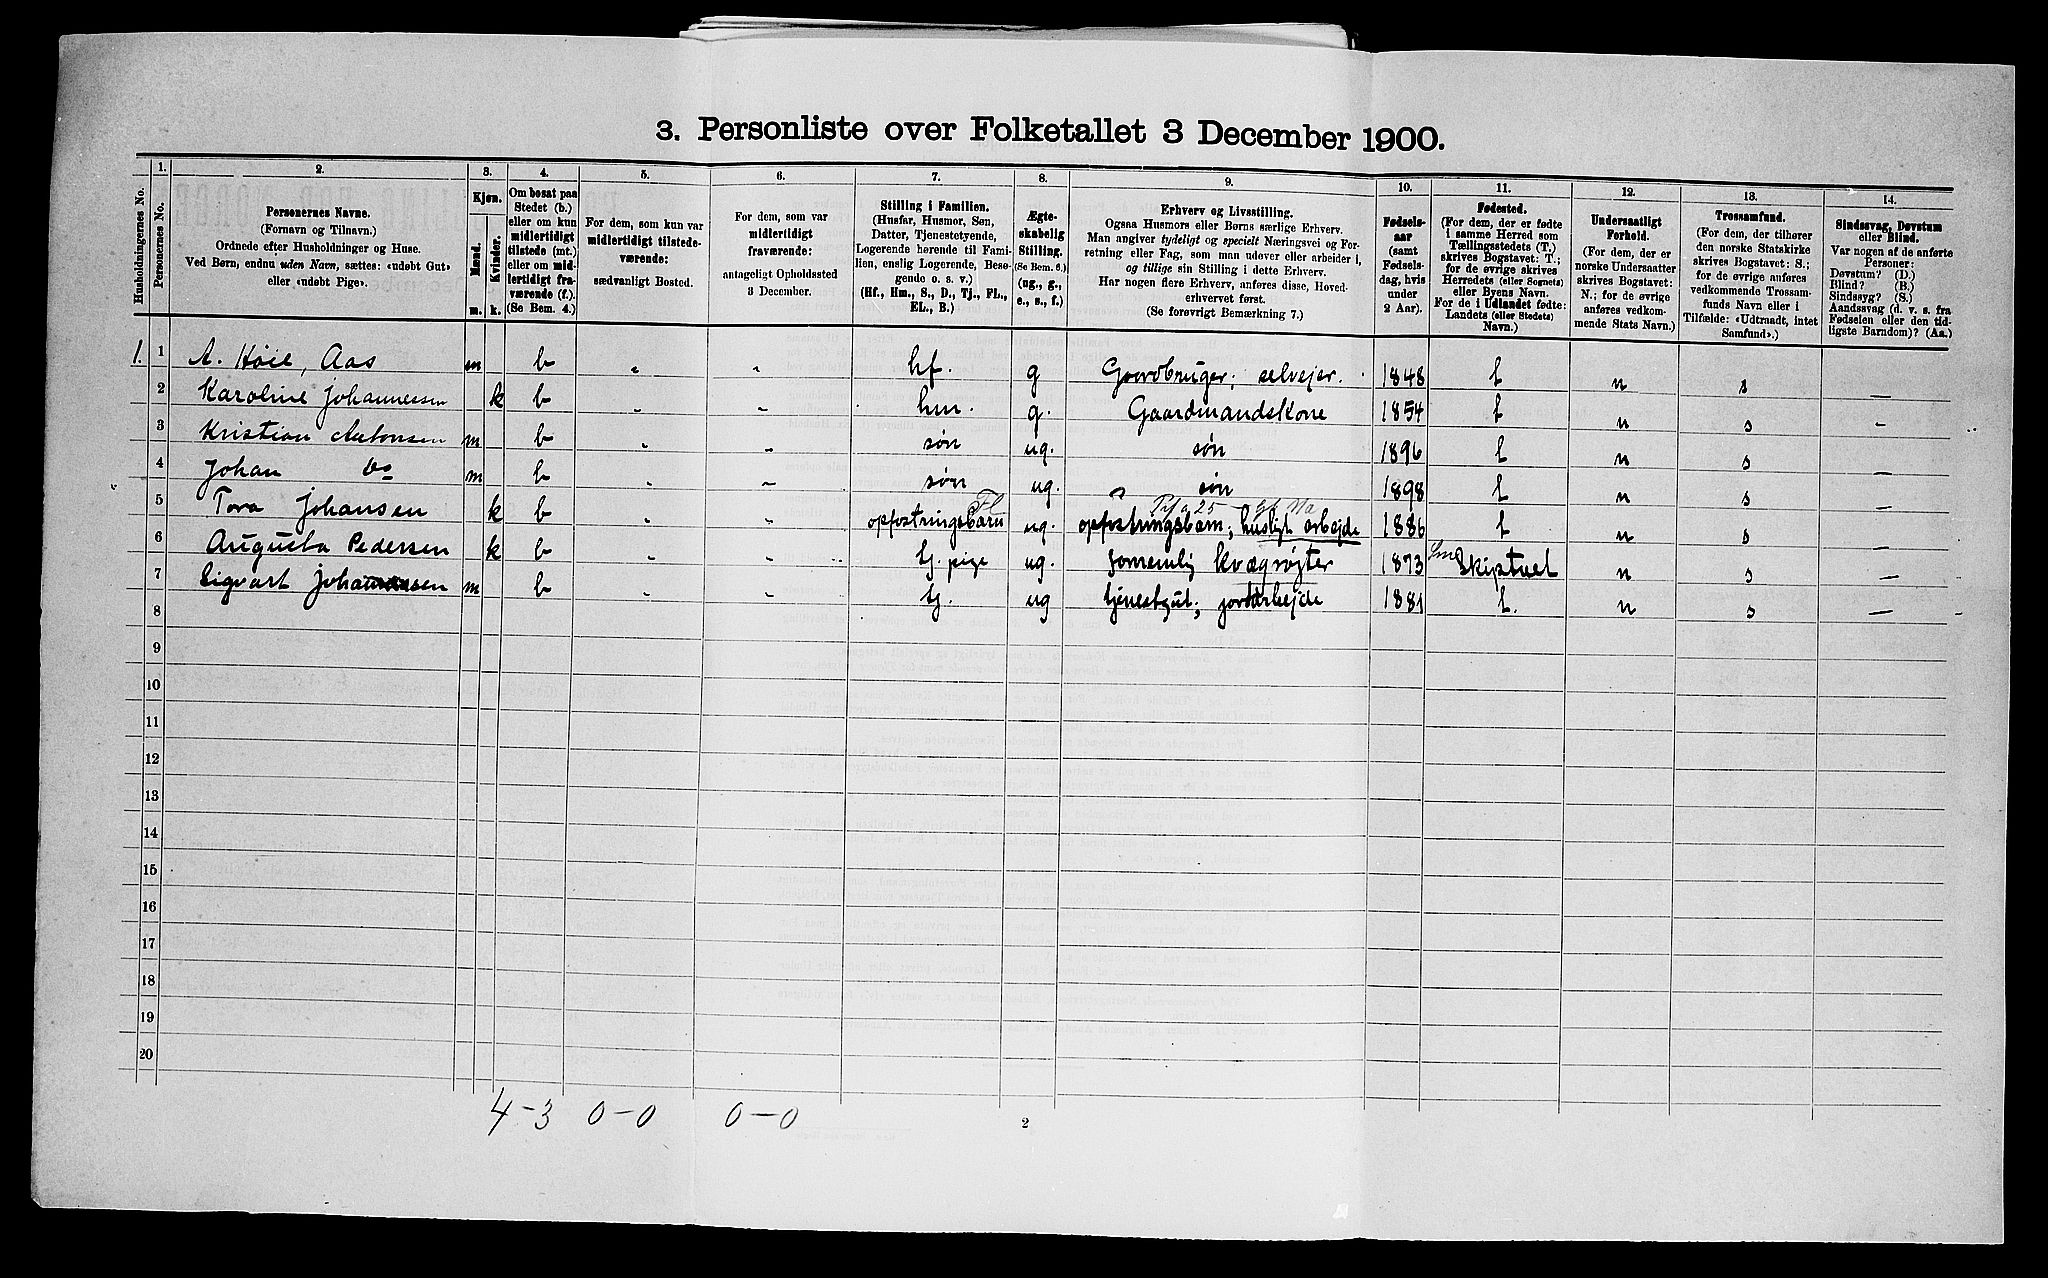 3. Personliste over Folketallet 3 December 1900.
1. 2. 3. 4. 5. 6. 7. 8. 9. 10. 11. 12. 13. 14.
Husholdningernes No.
Personernes No.
Personernes Navne.
(Fornavn og Tilnavn.)
Ordnede efter Husholdninger og Huse.
Ved Børn, endnu uden Navn, sættes: «udøbt Gut»
eller «udøbt Pige».
Kjøn.
Mænd.
Kvinder.
m. k.
Om bosat paa
Stedet (b.)
eller om kun
midlertidigt
tilstede (mt.)
eller om mid-
lertidigt fra-
værende (f.).
(Se Bem. 4.)
For dem, som kun var
midlertidigt tilstede-
værende:
sædvanligt Bosted.
For dem, som var
midlertidigt
fraværende:
antageligt Opholdssted
3 December.
Stilling i Familien.
(Husfar, Husmor, Søn,
Datter, Tjenestetyende,
Logerende hørende til Fami-
lien, enslig Logerende, Besø-
gende o. s. v.)
(Hf., Hm., S., D., Tj., FL.,
EL., B.)
Ægte-
skabelig
Stilling.
(Se Bem. 6.)
(ug., g.,
e., s., f.)
Erhverv og Livsstilling.
Ogsaa Husmors eller Børns særlige Erhverv.
Man angiver tydeligt og specielt Næringsvei og For-
retning eller Fag, som man udøver eller arbeider i,
og tillige sin Stilling i dette Erhverv.
Har nogen flere Erhverv, anføres disse, Hoved-
erhvervet først.
(Se forøvrigt Bemærkning 7.)
Fødsels-
aar
(samt
Fødsels-
dag, hvis
under
2 Aar).
Fødested.
(For dem, der er fødte
i samme Herred som
Tællingsstedets (T.)
skrives Bogstavet: T.;
for de øvrige skrives
Herredets (eller Sognets)
eller Byens Navn.
For de i Udlandet fødte:
Landets (eller Stedets)
Navn.)
Undersaatligt
Forhold.
(For dem, der er
norske Undersaatter
skrives Bogstavet:
N.; for de øvrige
anføres vedkom-
mende Stats Navn.)
Trossamfund.
(For dem, der tilhører
den norske Statskirke
skrives Bogstavet: S.;
for de øvrige anføres
vedkommende Trossam-
funds Navn eller i
Tilfælde: «Udtraadt, intet
Samfund».)
Sindssvag, Døvstum
eller Blind.
Var nogen af de anførte
Personer:
Døvstum? (D.)
Blind? (B.)
Sindssyg? (S.)
Aandssvag (d. v. s. fra
Fødselen eller den tid-
ligste Barndom)? (Aa.)
1. 1 A. Höie, Aas m b " " hf. g Gaardbruger; selvejer. 1848 t n s —
2 Karoline Johannessen k b " " hm. g. Gaardmandskone 1854 t n s —
3 Kristian Antonsen m b " " søn ug. søn 1896 t n s —
4 Johan Do m b " " søn ug. søn 1898 t n s —
Fl
5 Tora Johansen k b " " opfostringsbarn ug. opfostringsbarn; husligt arbejde 1886 t n s —
6 Augusta Pedersen k b " " tj. pige ug. kvægrøgter 1873 Skiptvet n s —
7 Sigvart Johannesen m b " " tj. ug tjenestgut; jordarbejde 1881 t. n s —
8
9
10
11
12
13
14
15
16
17
18
19
20
4-3 0-0 0-0
2